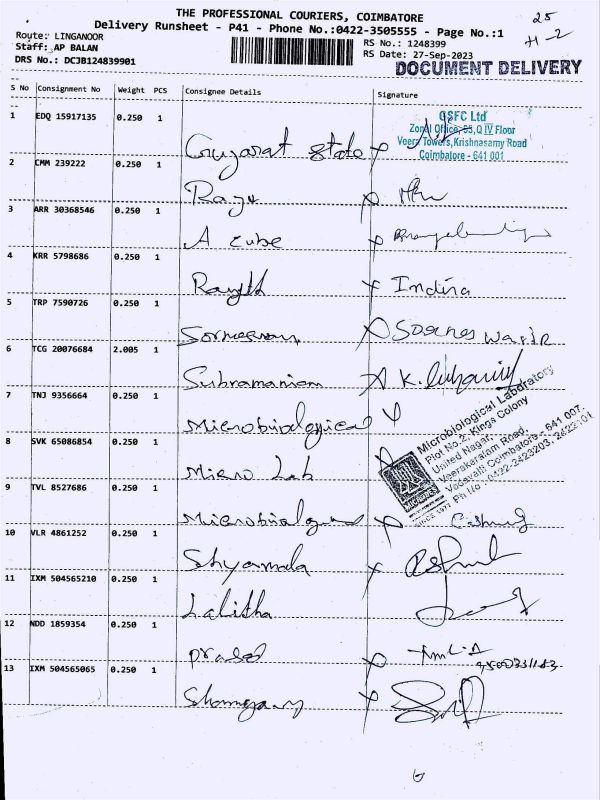 THE PROFESSIONAL COURIERS, COIMBATORE
Delivery Runsheet - P41 - Phone No.:0422-3505555 - Page No.:1
25
H-2
Route: LINGANOOR
Staff: AP BALAN
DRS No.: DCJB124839901
RS No.: 1248399
RS Date: 27-Sep-2023
DOCUMENT DELIVERY
S No Consignment No Weight PCS Consignee Details Signature
1 EDQ 15917135 0.250 1
GSFC Ltd
Zonal Office, 63, Q IV Floor
Veera Towers, Krishnasamy Road
Coimbatore - 641 001
Gujarat State
2 CMM 239222 0.250 1
Raju
3 ARR 30368546 0.250 1
A cube
4 KRR 5798686 0.250 1
Ranjith Indira
5 TRP 7590726 0.250 1
6 TCG 20076684 2.005 1
Subramaniam
7 TNJ 9356664 0.250 1
Microbiological
8 SVK 65086854 0.250 1
Micro Lab
Microbiological Laboratory
Plot No.2, Kings Colony
United Nagar,
Veerakeralam Road,
Vadavalli Coimbatore - 641 007.
Ph No : 0422-2423203, 2422101
SINCE 1974
9 TVL 8527686 0.250 1
Microbiological
10 VLR 4861252 0.250 1
Shyamala
11 IXM 504565210 0.250 1
Lalitha
12 NDD 1859354 0.250 1
13 IXM 504565065 0.250 1